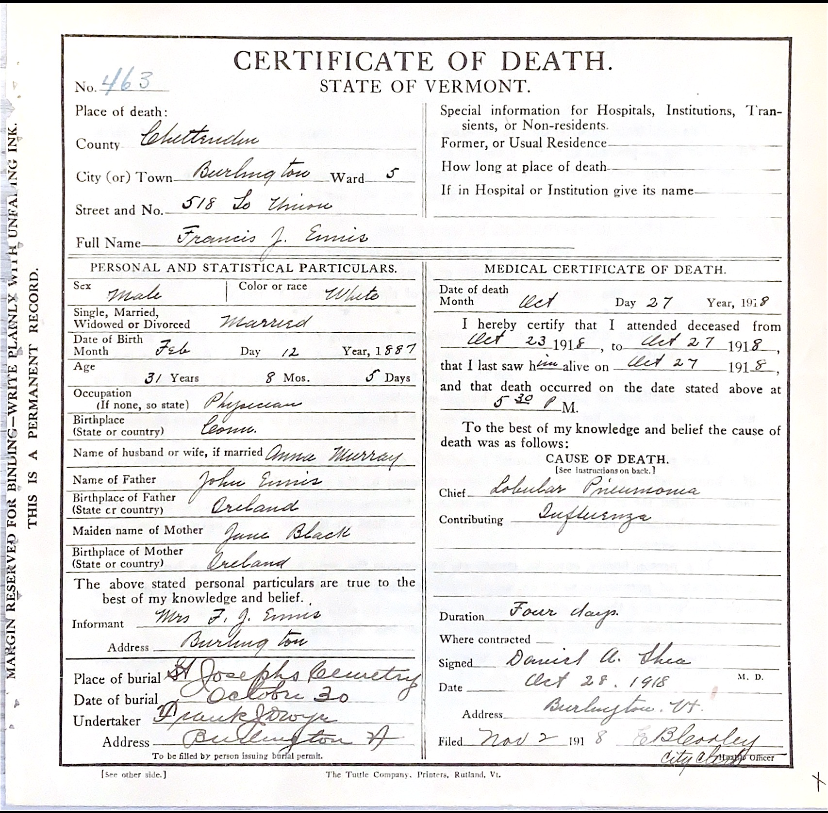 CERTIFICATE OF DEATH.
STATE OF VERMONT.
No. 463
MARGIN RESERVED FOR BINDING—WRITE PLAINLY WITH UNFADING INK.
THIS IS A PERMANENT RECORD.
Place of death:
County Chittenden
City (or) Town Burlington Ward 5
Street and No. 518 So Union
Full Name Francis J. Ennis
Special information for Hospitals, Institutions, Tran-
sients, or Non-residents.
Former, or Usual Residence
How long at place of death
If in Hospital or Institution give its name
PERSONAL AND STATISTICAL PARTICULARS.
Sex Male Color or race White
Single, Married,
Widowed or Divorced Married
Date of Birth
Month Feb Day 12 Year, 1887
Age
31 Years 8 Mos. 5 Days
Occupation
(If none, so state) Physician
Birthplace
(State or country) Conn.
Name of husband or wife, if married Anna Murray
Name of Father John Ennis
Birthplace of Father
(State or country) Ireland
Maiden name of Mother Jane Black
Birthplace of Mother
(State or country) Ireland
The above stated personal particulars are true to the
best of my knowledge and belief.
Informant Mrs F. J. Ennis
Address Burlington
Place of burial St Josephs Cemetry
Date of burial October 30
Undertaker Frank J Dwyer
Address Burlington Vt
To be filled by person issuing burial permit.
MEDICAL CERTIFICATE OF DEATH.
Date of death
Month Oct Day 27 Year, 1918
I hereby certify that I attended deceased from
Oct 23 1918, to Oct 27 1918,
that I last saw him alive on Oct 27 1918,
and that death occurred on the date stated above at
5 30 P M.
To the best of my knowledge and belief the cause of
death was as follows:
CAUSE OF DEATH.
[See instructions on back.]
Chief Lobular Pneumonia
Contributing Influenza
Duration Four days.
Where contracted
Signed Daniel A. Shea
M. D.
Date Oct 28. 1918
Address Burlington. Vt.
Filed Nov 2 1918 Cooley
City Clerk Officer
[See other side.]
The Tuttle Company, Printers, Rutland, Vt.
x